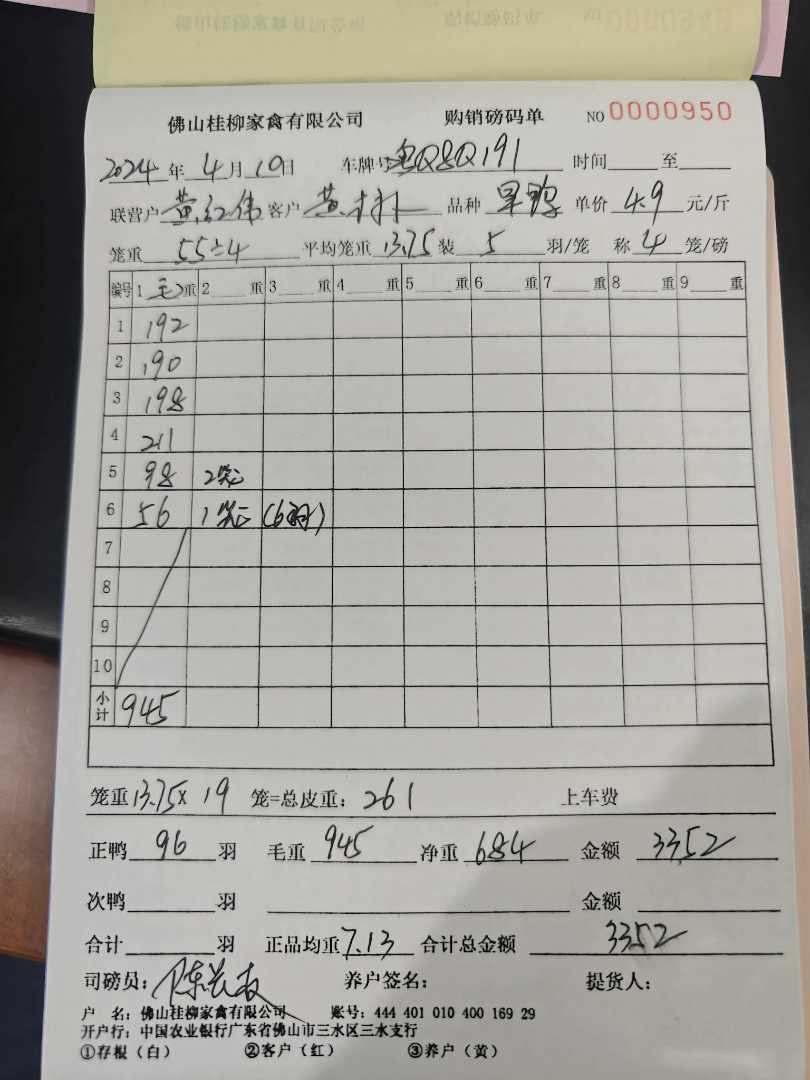 佛山桂柳家禽有限公司 购销磅码单 NO 0000950
2024年4月10日 车牌号粤Q8Q191 时间____至____
联营户 黄红伟 客户 黄 品种 旱鸭 单价 4.9 元/斤
笼重 55÷4 平均笼重 13.75 装 5 羽/笼 称 4 笼/磅
编号 1 毛 重 2____重 3____重 4____重 5____重 6____重 7____重 8____重 9____重
1 192
2 190
3 198
4 211
5 98 2笼
6 56 1笼 (6羽)
7
8
9
10
小计 945
笼重 13.75× 19 笼=总皮重: 261 上车费
正鸭 96 羽 毛重 945 净重 684 金额 3352
次鸭____羽 金额
合计____羽 正品均重 7.13 合计总金额 3352
司磅员: 陈 养户签名: 提货人:
户 名: 佛山桂柳家禽有限公司 账号: 444 401 010 400 169 29
开户行: 中国农业银行广东省佛山市三水区三水支行
①存根(白) ②客户(红) ③养户(黄)